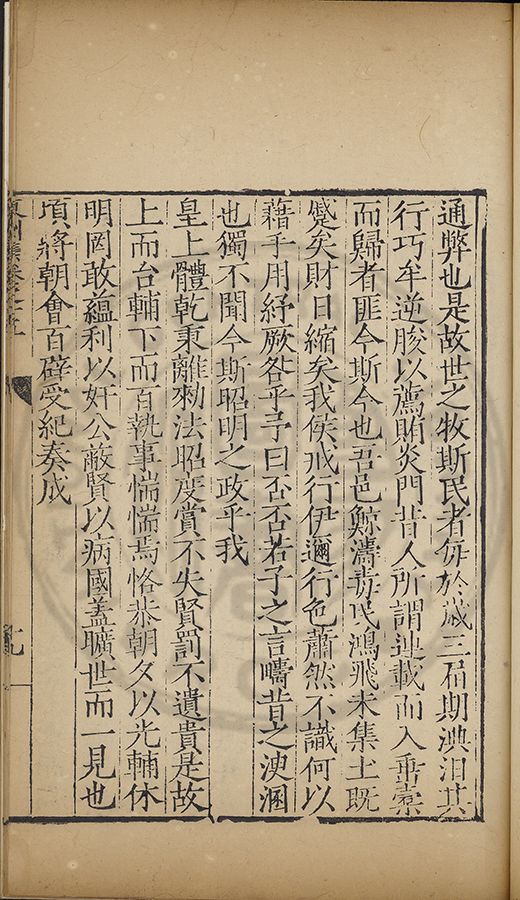 通弊也是故世之牧斯民者每於歲三屆期淟汩其
行巧牟逆朘以薦賄炎門昔人所謂連載而入垂橐
而歸者匪今斯今也吾邑鯨濤毒民鴻飛未集土既
蹙矣財日縮矣我侯戒行伊邇行色蕭然不識何以
藉手用紓厥咎乎予曰否否若子之言疇昔之淟涊
也獨不聞今斯昭明之政乎我
皇上體乾秉離勑法昭度賞不失賢罰不遺貴是故
上而台輔下而百執事惴惴焉恪恭朝夕以光輔休
明罔敢蘊利以奸公蔽賢以病國蓋曠世而一見也
頃將朝會百辟受紀奏成
九